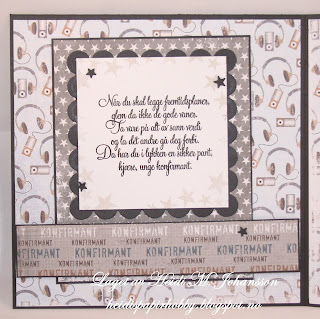 Når du skal legge fremtidsplaner,
glem da ikke de gode vaner.
Ta vare på alt av sann verdi
og la det andre gå deg forbi.
Da har du i lykken en sikker pant,
kjære, unge konfirmant.
KONFIRMANT KONFIRMANT KONFIRMANT
KONFIRMANT KONFIRMANT KONFIRMANT KONFIRMANT
KONFIRMANT KONFIRMANT KONFIRMANT
KONFIRMANT KONFIRMANT KONFIRMANT KONFIRMANT
Laget av Heidi M. Johansson